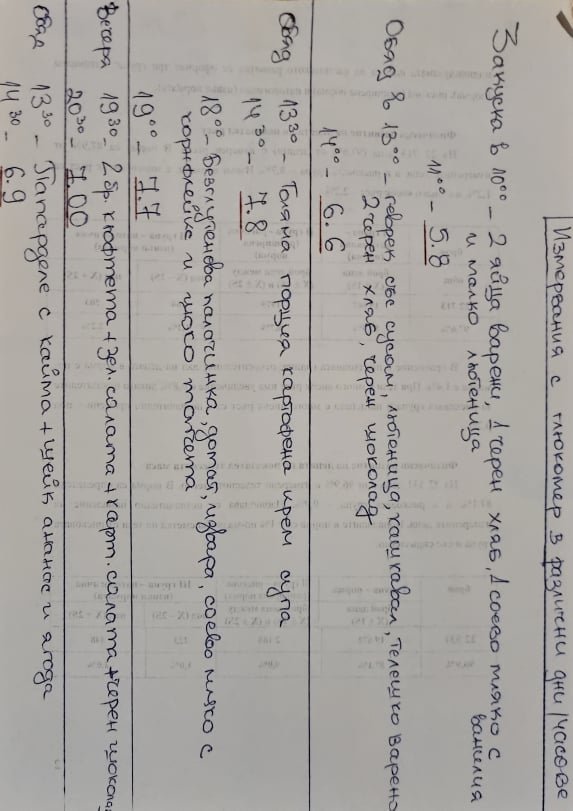 Измервания с глюкомер в различни дни/часове
Закуска в 10⁰⁰ - 2 яйца варени, 1 черен хляб, 1 соево мляко с ванилия
и малко лютеница
11⁰⁰ - 5.8
Обяд в 13⁰⁰ - геврек със сусам, лютеница, кашкавал, телешко варено
2 черен хляб, черен шоколад
14⁰⁰ - 6.6
Обяд 13³⁰ - Голяма порция картофена крем супа
14³⁰ - 7.8
18⁰⁰ - Безглутенова палачинка, домат, извара, соево мляко с
корнфлейкс и шоко топчета
19⁰⁰ - 7.7
Вечеря 19³⁰ - 2 бр. кюфтета + зел. салата + карт. салата + черен шокола
20³⁰ - 7.00
Обяд 13³⁰ - Папарделе с кайма + шейк ананас и ягода
14³⁰ - 6.9